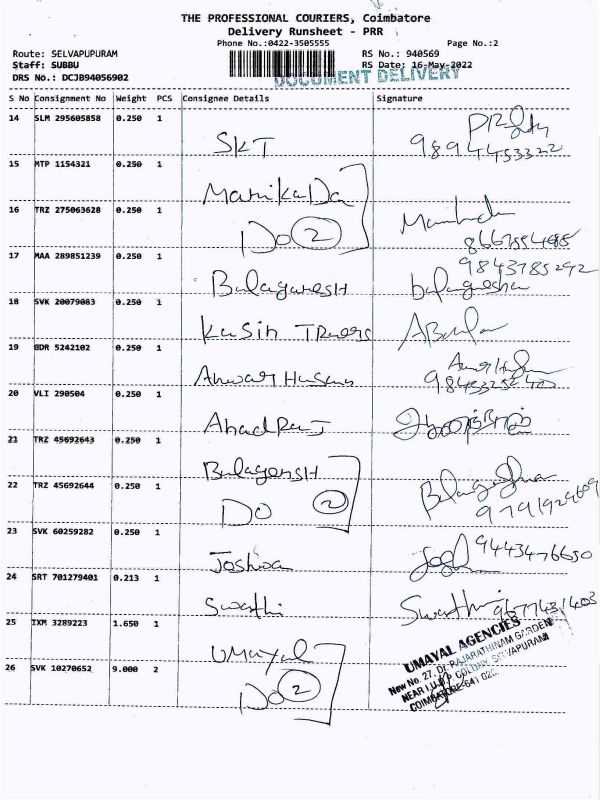 THE PROFESSIONAL COURIERS, Coimbatore
Delivery Runsheet - PRR
Phone No.:0422-3505555 Page No.:2
Route: SELVAPUPURAM RS No.: 940569
Staff: SUBBU RS Date: 16-May-2022
DRS No.: DCJB94056902 DOCUMENT DELIVERY
S No Consignment No Weight PCS Consignee Details Signature
14 SLM 295605858 0.250 1
SKT 9894453322
15 MTP 1154321 0.250 1
Manikada
16 TRZ 275063628 0.250 1
Do 2
17 MAA 289851239 0.250 1 9843785292
Balaganesh balaganesha
18 SVK 20079083 0.250 1
Kasin
19 GDR 5242102 0.250 1
20 VLI 290504 0.250 1
21 TRZ 45692643 0.250 1
22 TRZ 45692644 0.250 1
Do 2 9791929609
23 SVK 60259282 0.250 1
Joshwa 9443476650
24 SRT 701279401 0.213 1
Swathi Swathi 9677431403
25 IXM 3289223 1.650 1
Umayal UMAYAL AGENCIES
26 SVK 10270652 9.000 2
Do 2
New No. 27, RAJARATHINAM GARDEN
COLONY, SELVAPURAM
COIMBATORE-641 026.